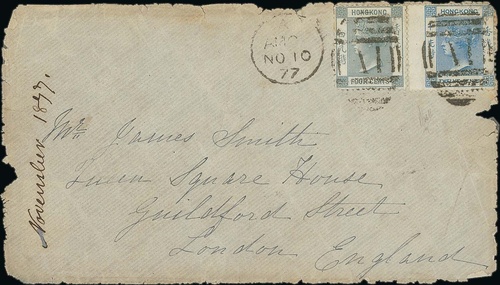 HONGKONG
HONGKONG
FOUR CENTS
A
NO 10
77
November 1877.
Mr. James Smith
Queen Square House
Guildford Street
London
England